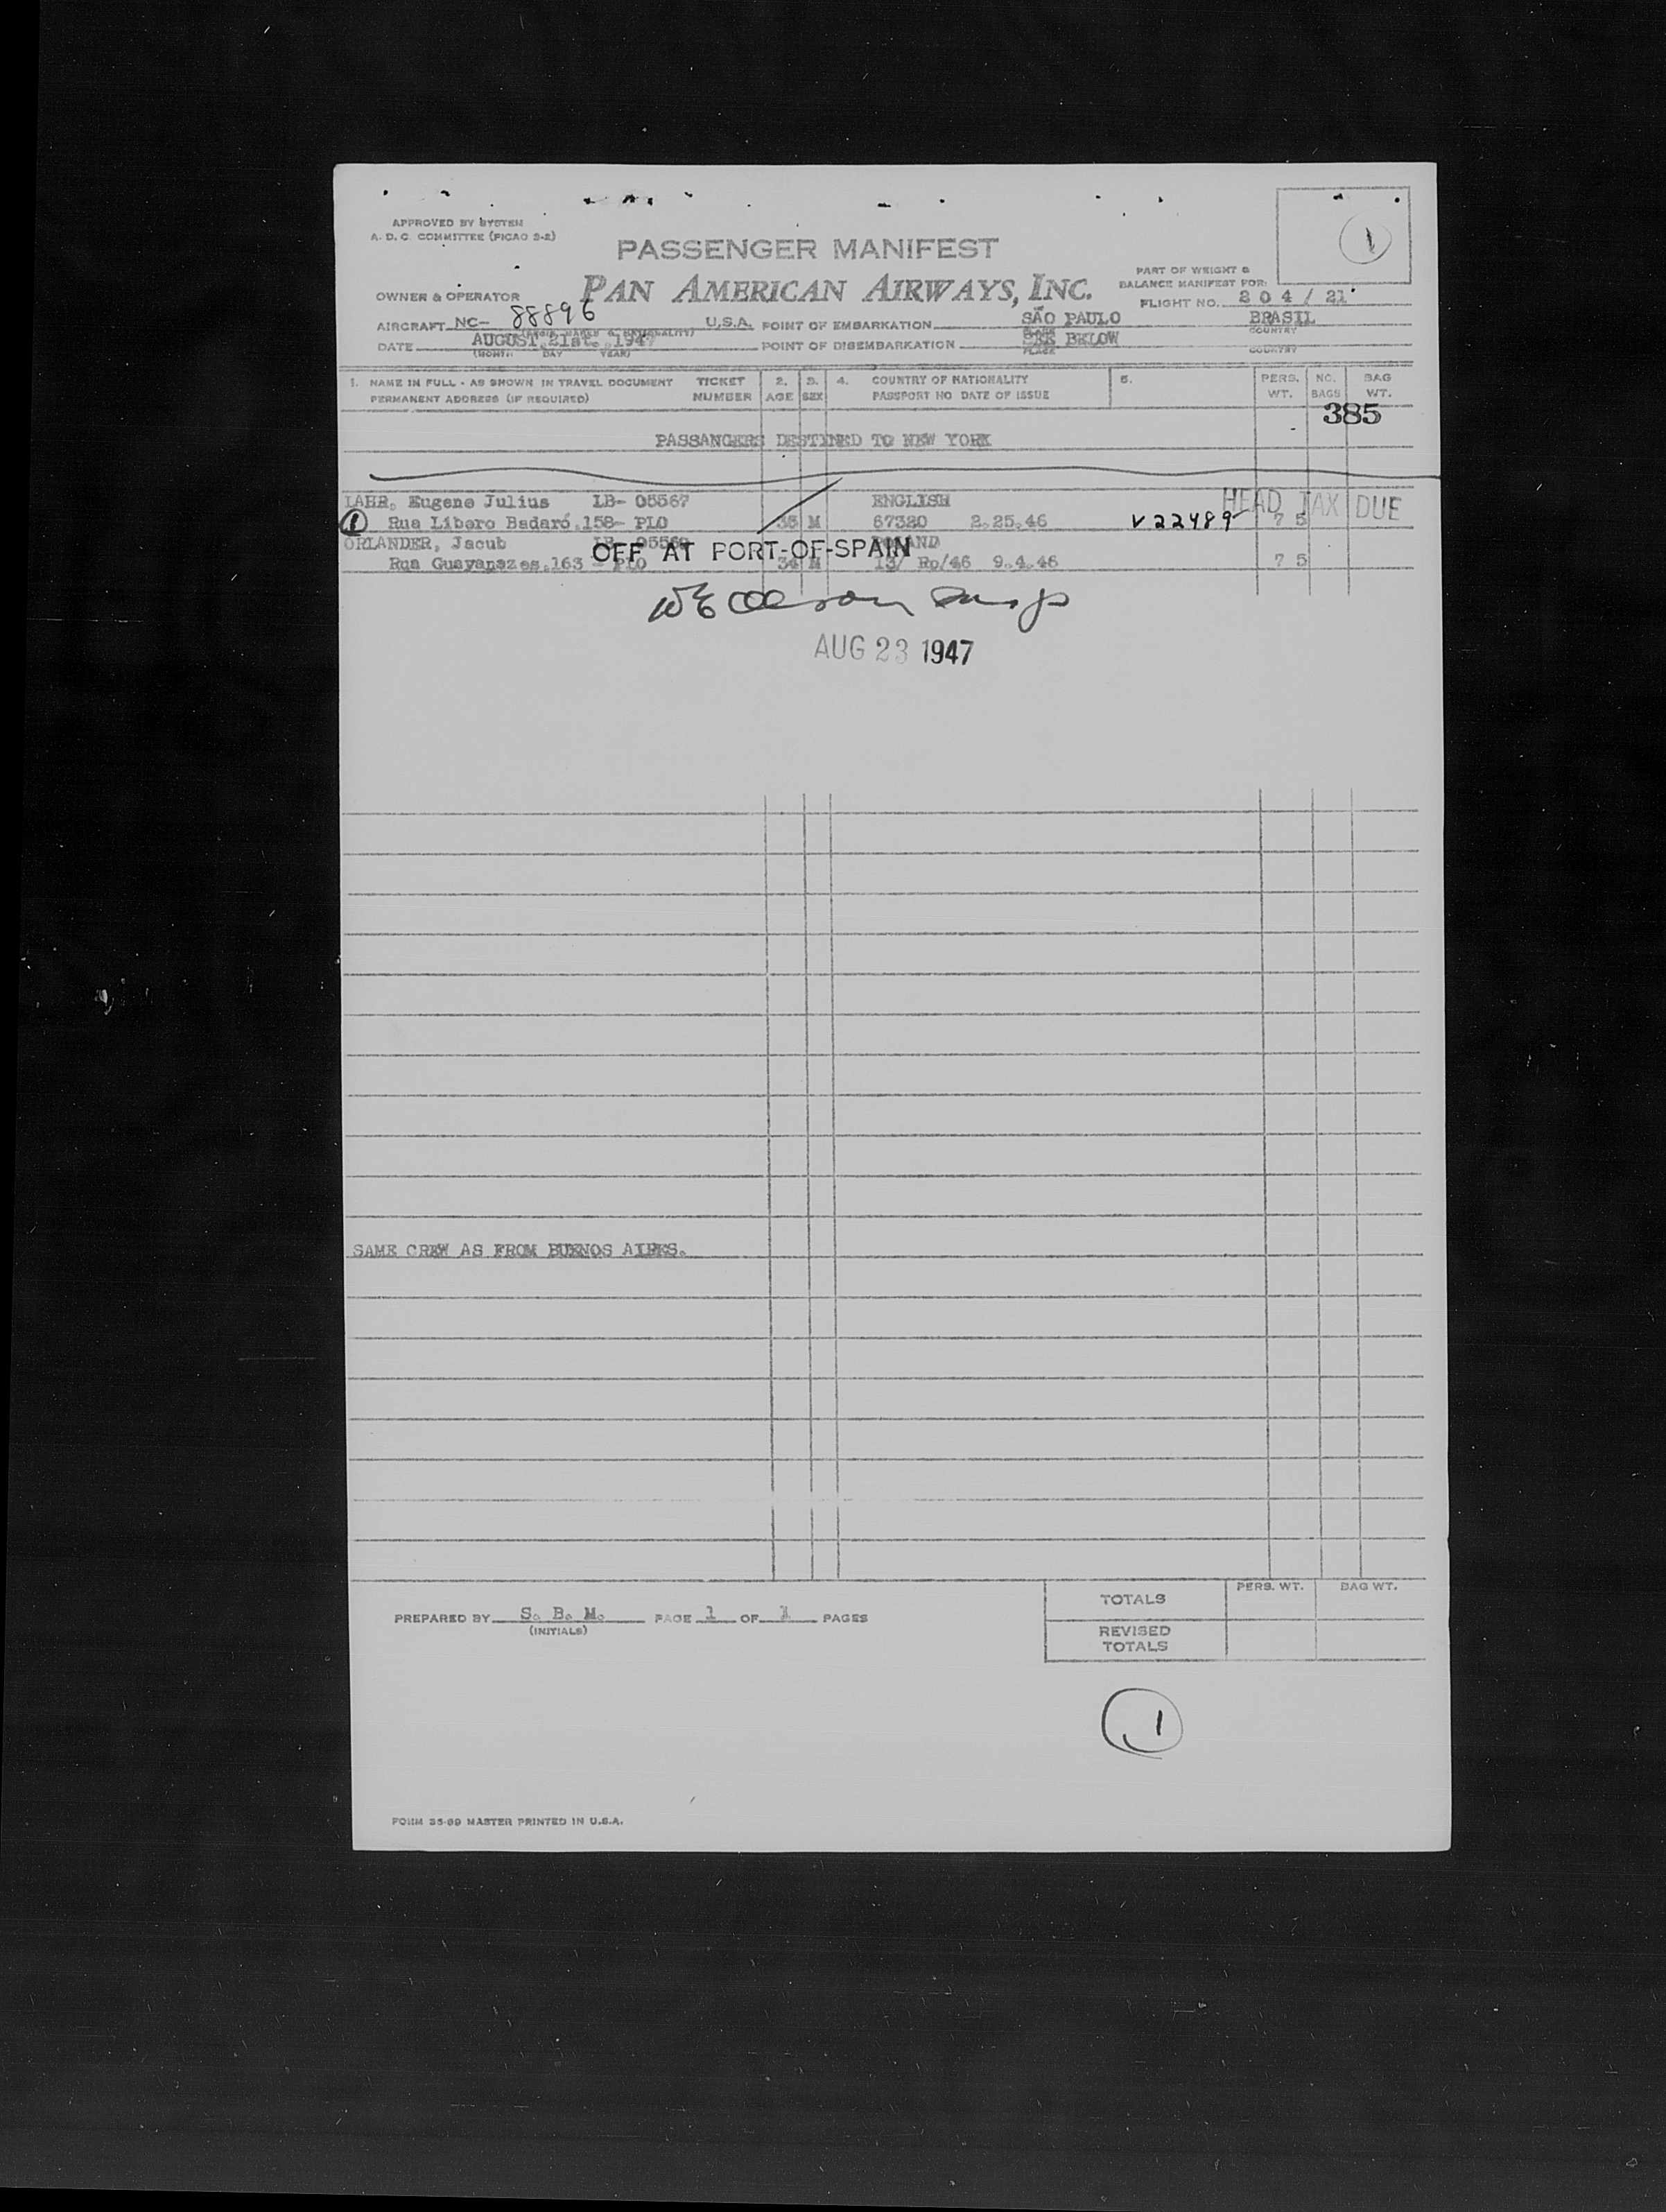 APPROVED BY SYSTEM
A. D. C. COMMITTEE (PICAO 2-2)
PASSENGER MANIFEST
PAN AMERICAN AIRWAYS, INC.
PART OF WEIGHT &
BALANCE MANIFEST FOR:
FLIGHT NO. 204/21
1
OWNER & OPERATOR
AIRCRAFT NC- 88896 U.S.A. POINT OF EMBARKATION SÃO PAULO BRASIL
PLACE COUNTRY
DATE AUGUST 21st. 1947 POINT OF DISEMBARKATION SEE BELOW
(MONTH DAY YEAR) PLACE COUNTRY
1. NAME IN FULL - AS SHOWN IN TRAVEL DOCUMENT TICKET 2. 3. 4. COUNTRY OF NATIONALITY 5. PERS. NO. BAG
PERMANENT ADDRESS (IF REQUIRED) NUMBER AGE SEX PASSPORT NO DATE OF ISSUE WT. BAGS WT.
385
PASSANGERS DESTINED TO NEW YORK
LAHR, Eugene Julius LB- 05567 ENGLISH HEAD TAX DUE
1 Rua Libero Badaró.158- PLO 35 M 67320 2.25.46 V22489 75
ORLANDER, Jacub POLAND
OFF AT PORT-OF-SPAIN
Rua Guayanazes.163 - PLO 34 M 13/ Rp/46 9.4.46 75
AUG 23 1947
SAME CREW AS FROM BUENOS AIRES.
PREPARED BY S. B. M. PAGE 1 OF 1 PAGES
(INITIALS)
PERS. WT. BAG WT.
TOTALS
REVISED
TOTALS
1
FORM 35-99 MASTER PRINTED IN U.S.A.